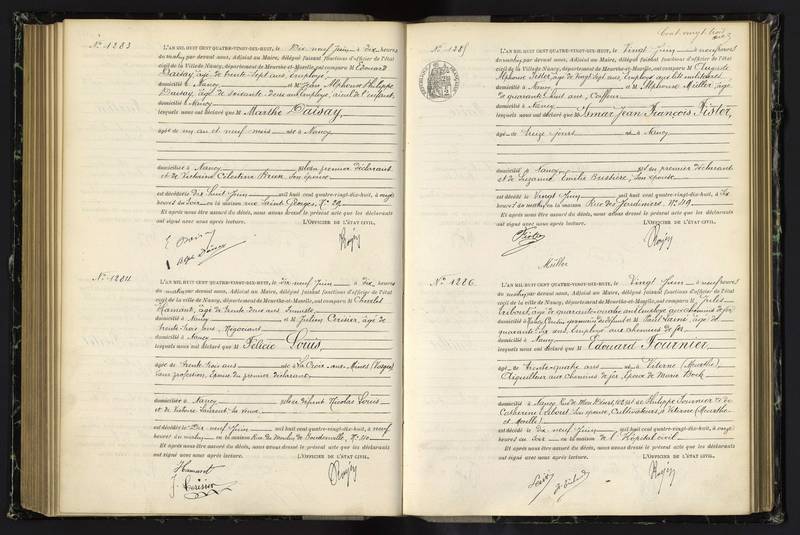 N° 1283
L'AN MIL HUIT CENT QUATRE-VINGT-DIX-HUIT, le Dix neuf Juin à dix heures
du matin, par devant nous, Adjoint au Maire, délégué faisant fonctions d'officier de l'état
civil de la Ville de Nancy, département de Meurthe-et-Moselle, ont comparu M Edouard
Daisay, âgé de trente sept ans, employé,
domicilié à Nancy et M Jean Alphonse Philippe
Daisay, âgé de soixante-deux ans, employé, aïeul de l'enfant,
domicilié à Nancy
lesquels nous ont déclaré que M Marthe Daisay,
âgée de un an et neuf mois née à Nancy
domiciliée à Nancy fille du premier déclarant
et de Victorine Célestine Brux, son épouse
est décédée le Dix huit Juin mil huit cent quatre-vingt-dix-huit, à onze
heures du soir en la maison rue Saint Georges, N° 29
Et après nous être assuré du décès, nous avons dressé le présent acte que les déclarants
ont signé avec nous après lecture. L'OFFICIER DE L'ÉTAT CIVIL,
N° 1284
L'AN MIL HUIT CENT QUATRE-VINGT-DIX-HUIT, le dix neuf Juin à dix heures
du matin, par devant nous, Adjoint au Maire, délégué faisant fonctions d'officier de l'état
civil de la Ville de Nancy, département de Meurthe-et-Moselle, ont comparu M Charles
Hamant, âgé de trente deux ans,
domicilié à Nancy et M Julien Cerisier, âgé de
trente trois ans, Négociant
domicilié à Nancy
lesquels nous ont déclaré que M Félicie Louis,
âgée de trente trois ans née à La Croix-aux-Mines (Vosges)
sans profession, épouse du premier déclarant
domiciliée à Nancy fille de défunt Nicolas Louis
et de Victoire Laurent, sa veuve
est décédée le Dix neuf Juin mil huit cent quatre-vingt-dix-huit, à neuf
heures du matin en la maison Rue du Moulin de Boudonville, N° 40
Et après nous être assuré du décès, nous avons dressé le présent acte que les déclarants
ont signé avec nous après lecture. L'OFFICIER DE L'ÉTAT CIVIL,
Hamant
J. Cerisier
N° 1285
L'AN MIL HUIT CENT QUATRE-VINGT-DIX-HUIT, le Vingt Juin à neuf heures
du matin, par devant nous, Adjoint au Maire, délégué faisant fonctions d'officier de l'état
civil de la Ville de Nancy, département de Meurthe-et-Moselle, ont comparu M
Alphonse Fister, âgé de vingt sept ans, employé aux lits militaires
domicilié à Nancy et M Alphonse Müller, âgé
de quarante huit ans, Coiffeur
domicilié à Nancy
lesquels nous ont déclaré que M Ismar Jean François Fister,
âgé de treize jours né à Nancy
domicilié à Nancy fils du premier déclarant
et de Suzanne Emilie Bussière, son épouse
est décédé le vingt Juin mil huit cent quatre-vingt-dix-huit, à six
heures du matin en la maison Rue des Jardiniers, N° 49
Et après nous être assuré du décès, nous avons dressé le présent acte que les déclarants
ont signé avec nous après lecture. L'OFFICIER DE L'ÉTAT CIVIL,
Fister
Müller
N° 1286
L'AN MIL HUIT CENT QUATRE-VINGT-DIX-HUIT, le Vingt Juin à neuf heures
du matin, par devant nous, Adjoint au Maire, délégué faisant fonctions d'officier de l'état
civil de la Ville de Nancy, département de Meurthe-et-Moselle, ont comparu M Jules
âgé de quarante quatre ans, employé aux chemins de fer,
domicilié à Nancy, Cousin germain du défunt et M Paul
quarante six ans, employé aux chemins de fer
domicilié à Nancy
lesquels nous ont déclaré que M Edouard Fournier,
âgé de trente quatre ans né à Vitrey (Meurthe)
Aiguilleur aux chemins de fer, époux de Marie Bock
domicilié à Nancy, fils de Philippe Fournier et de
Catherine son épouse, Cultivateurs, à Vitrey (Meurthe-
et-Moselle)
est décédé le dix neuf Juin mil huit cent quatre-vingt-dix-huit, à onze
heures du soir en la maison de l'Hôpital civil
Et après nous être assuré du décès, nous avons dressé le présent acte que les déclarants
ont signé avec nous après lecture. L'OFFICIER DE L'ÉTAT CIVIL,